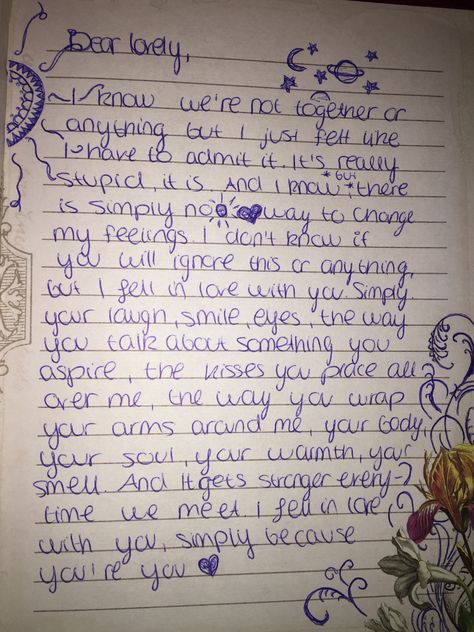 Dear lovely,
I know we're not together or
anything but I just felt like
I have to admit it. It's really
stupid, it is. And I know *but* there
is simply no way to change
my feelings. I don't know if
you will ignore this or anything,
but I fell in love with you. Simply
your laugh, smile, eyes, the way
you talk about something you
aspire, the kisses you place all
over me, the way you wrap
your arms around me, your body,
your soul, your warmth, your
smell. And it gets stronger every-
time we meet. I fell in love
with you, simply because
you're you